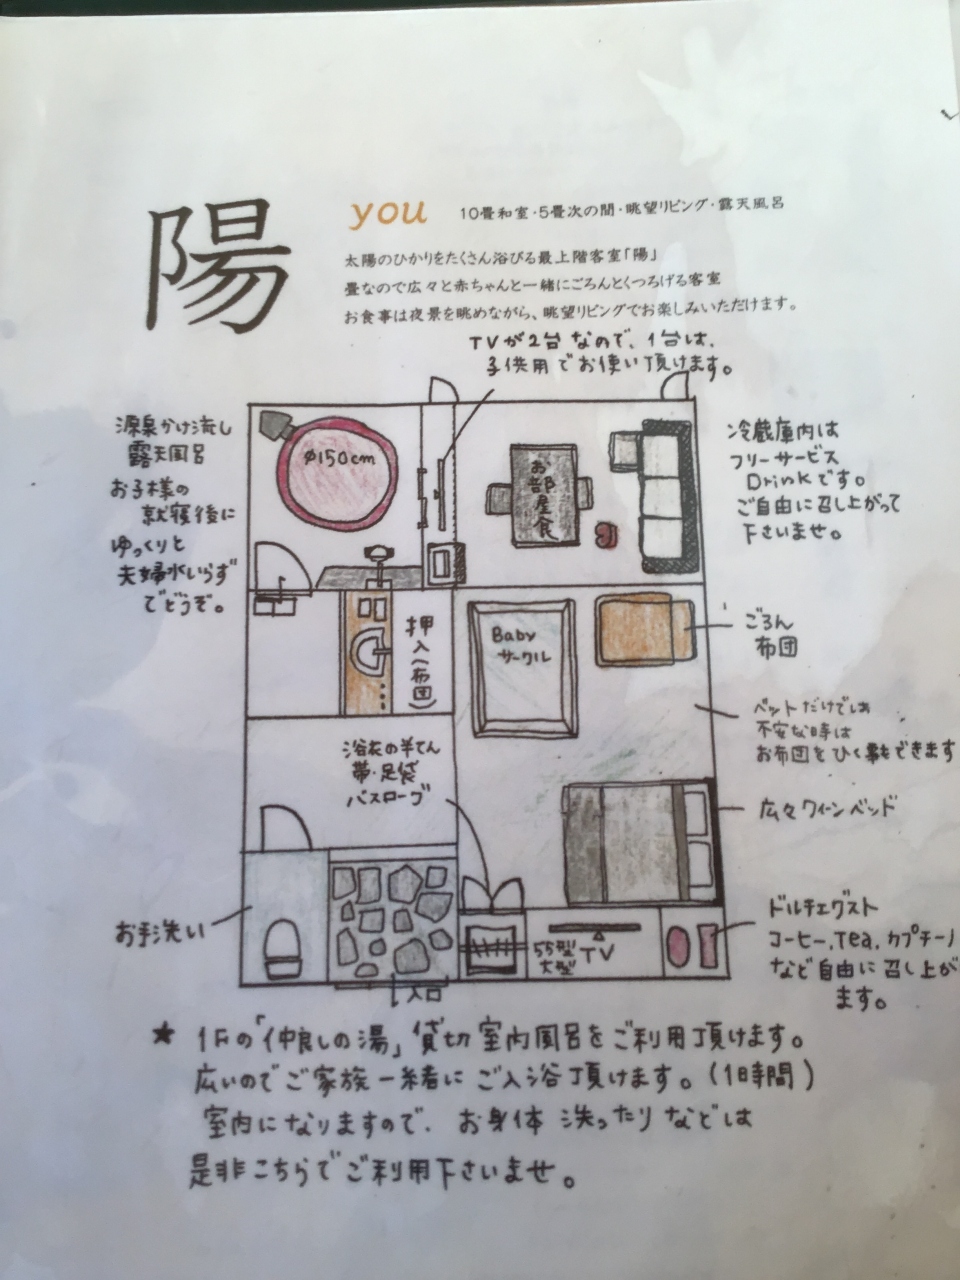 陽
you
10畳和室・5畳次の間・眺望リビング・露天風呂
太陽のひかりをたくさん浴びる最上階客室「陽」
畳なので広々と赤ちゃんと一緒にごろんとくつろげる客室
お食事は夜景を眺めながら、眺望リビングでお楽しみいただけます。
TVが2台なので、1台は、
子供用でお使い頂けます。
源泉かけ流し
露天風呂
お子様の
就寝後に
ゆっくりと
夫婦水いらず
でどうぞ。
φ150cm
お部屋食
冷蔵庫内は
フリーサービス
Drinkです。
ご自由に召し上がって
下さいませ。
押入(布団)
Baby
サークル
ごろん
布団
ベットだけでは
不安な時は
お布団をひく事もできます
浴衣の半てん
帯・足袋
バスローブ
広々クイーンベッド
お手洗い
入口
55型
大型
TV
ドルチェグスト
コーヒー,Tea,カプチーノ
など自由に召し上が
ます。
★ 1Fの「仲良しの湯」貸切室内風呂をご利用頂けます。
広いのでご家族一緒にご入浴頂けます。(1時間)
室内になりますので、お身体洗ったりなどは
是非こちらでご利用下さいませ。